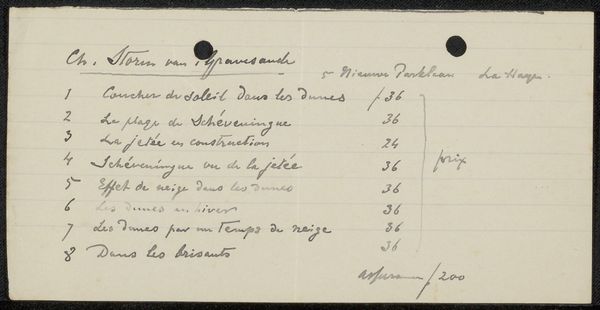 Ch. Storm van 's Gravesande
5 Nieuwe Parklaan La Haye.
1 Coucher de soleil dans les dunes f 36
2 La plage de Schéveningue 36
3 La jetée en construction 24
4 Schéveningue vu de la jetée 36
5 Effet de neige dans les dunes 36
6 Les dunes en hiver 36
7 Les dunes par un temps de neige 36
8 Dans les brisants 36
prix
f 200